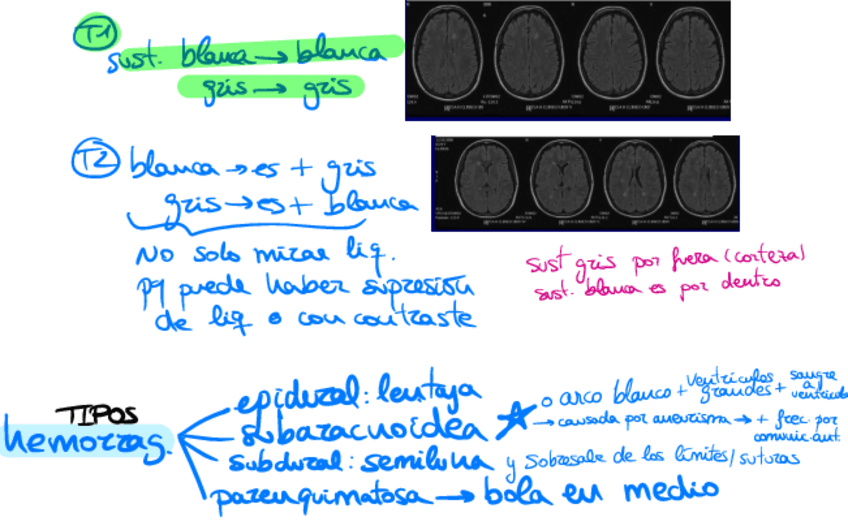 T1
sust. blanca → blanca
gris → gris
T2 blanca → es + gris
gris → es + blanca
No solo mirar liq.
pq puede haber supresión
de liq o con contraste
sust gris por fuera (corteza)
sust. blanca es por dentro
TIPOS
hemorrag.
epidural: lenteja
subaracnoidea ☆ o arco blanco + ventrículos grandes + sangre a ventrículo
→ causada por aneurisma → + frec. por comunic. ant.
subdural: semiluna y sobresale de los límites/suturas
parenquimatosa → bola en medio